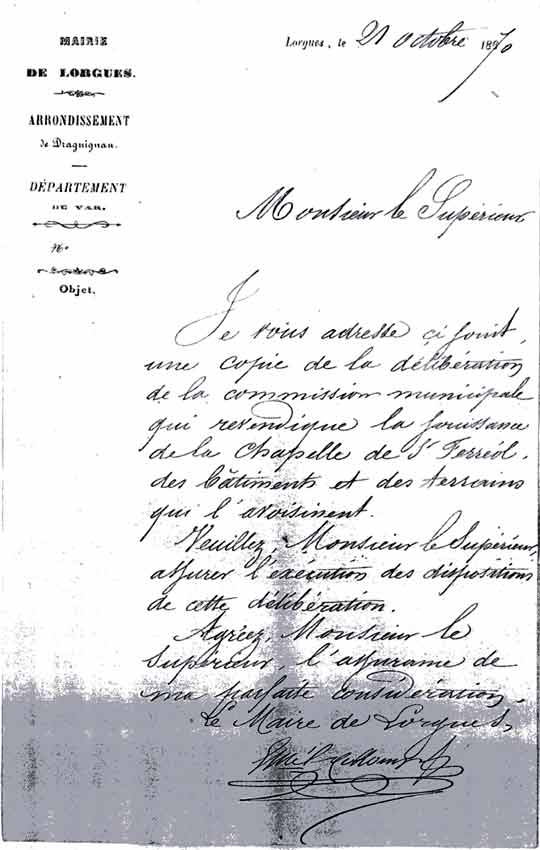 MAIRIE
DE LORGUES.
ARRONDISSEMENT
de Draguignan.
DÉPARTEMENT
DU VAR.
N°
Objet.
Lorgues, le 21 octobre 1870
Monsieur le Supérieur
Je vous adresse ci joint,
une copie de la délibération
de la commission municipale
qui revendique la jouissance
de la Chapelle de St Ferréol,
des bâtiments et des terrains
qui l'avoisinent.
Veuillez, Monsieur le Supérieur,
assurer l'exécution des dispositions
de cette délibération.
Agréez, Monsieur le
Supérieur, l'assurance de
ma parfaite considération,
Le Maire de Lorgues,